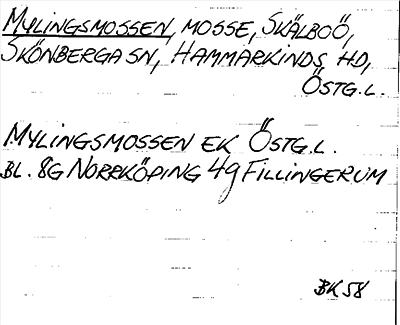 MYLINGSMOSSEN, MOSSE, SKÄLBOÖ,
SKÖNBERGA SN, HAMMARKINDS HD,
ÖSTG.L.
MYLINGSMOSSEN EK ÖSTG.L.
BL. 8G NORRKÖPING 4g FILLINGERUM
BK 58